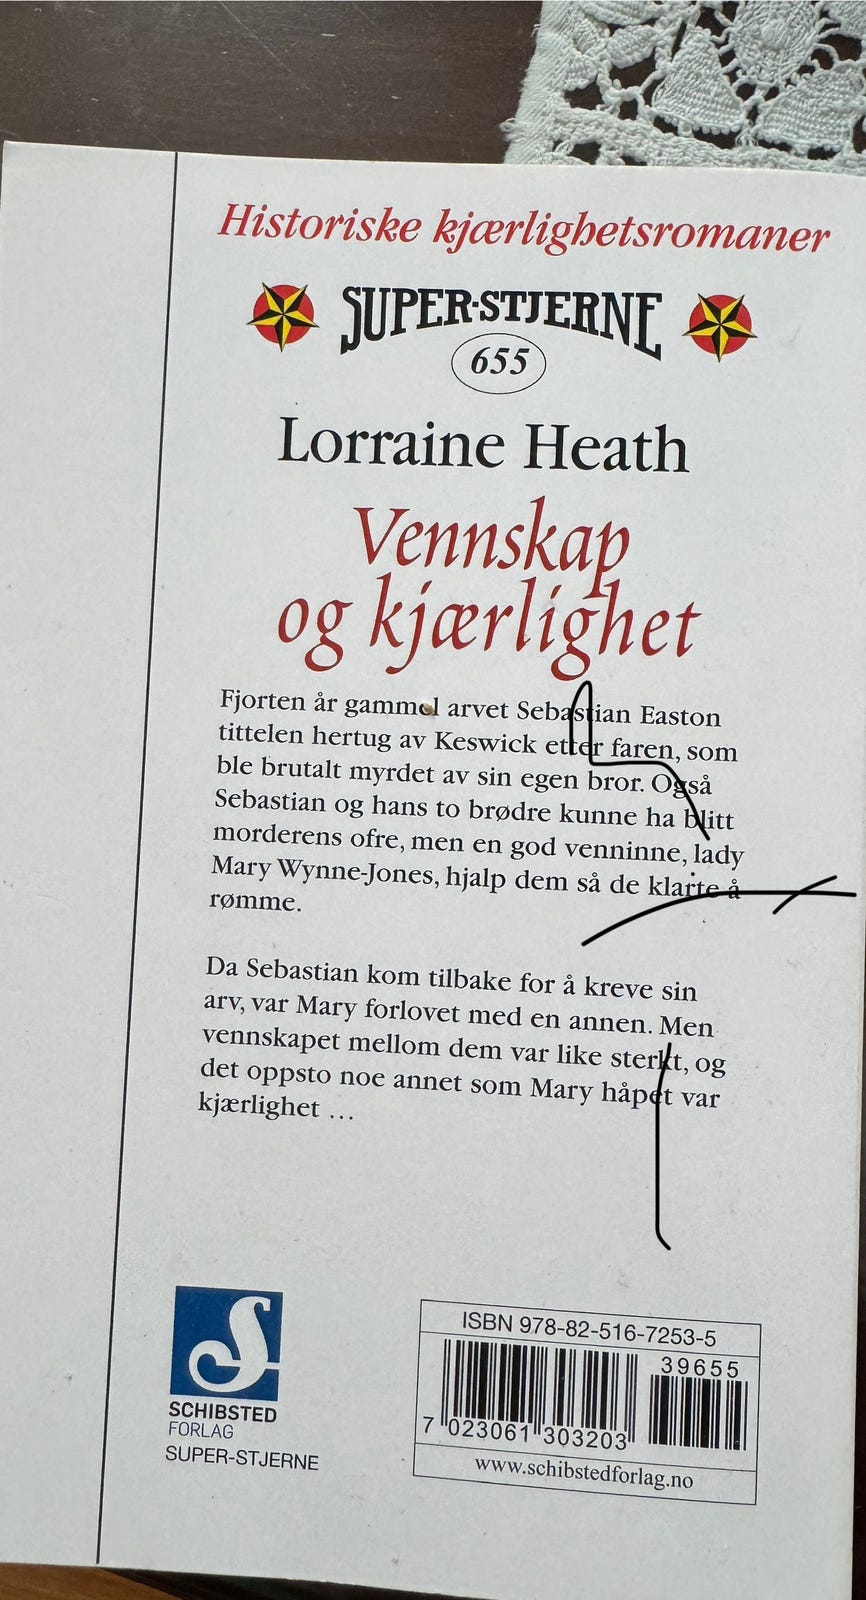 Historiske kjærlighetsromaner
SUPER-STJERNE
655
Lorraine Heath
Vennskap
og kjærlighet
Fjorten år gammel arvet Sebastian Easton
tittelen hertug av Keswick etter faren, som
ble brutalt myrdet av sin egen bror. Også
Sebastian og hans to brødre kunne ha blitt
morderens ofre, men en god venninne, lady
Mary Wynne-Jones, hjalp dem så de klarte å
rømme.
Da Sebastian kom tilbake for å kreve sin
arv, var Mary forlovet med en annen. Men
vennskapet mellom dem var like sterkt, og
det oppsto noe annet som Mary håpet var
kjærlighet ...
S
SCHIBSTED
FORLAG
SUPER-STJERNE
ISBN 978-82-516-7253-5
39655
7 023061 303203
www.schibstedforlag.no